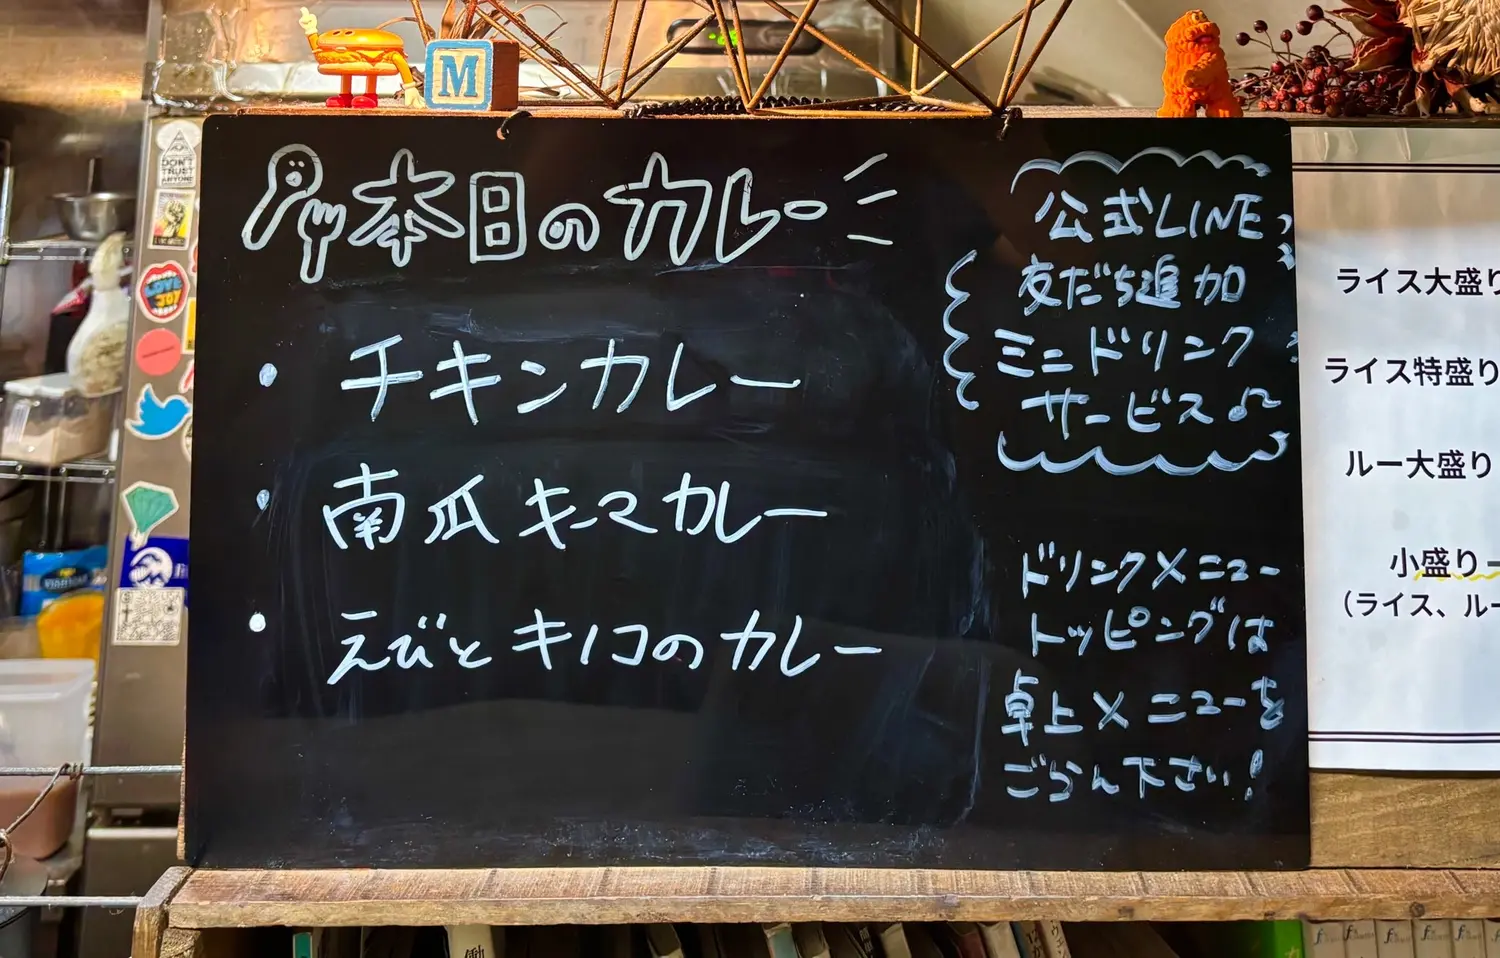 本日のカレー
・チキンカレー
・南瓜キーマカレー
・えびとキノコのカレー
公式LINE
友だち追加
ミニドリンク
サービス♪
ドリンクメニュー
トッピングは
卓上メニューを
ごらん下さい!
ライス大盛り
ライス特盛り
ルー大盛り
小盛り
(ライス、ルー
M
DON'T
TRUST
ANYONE